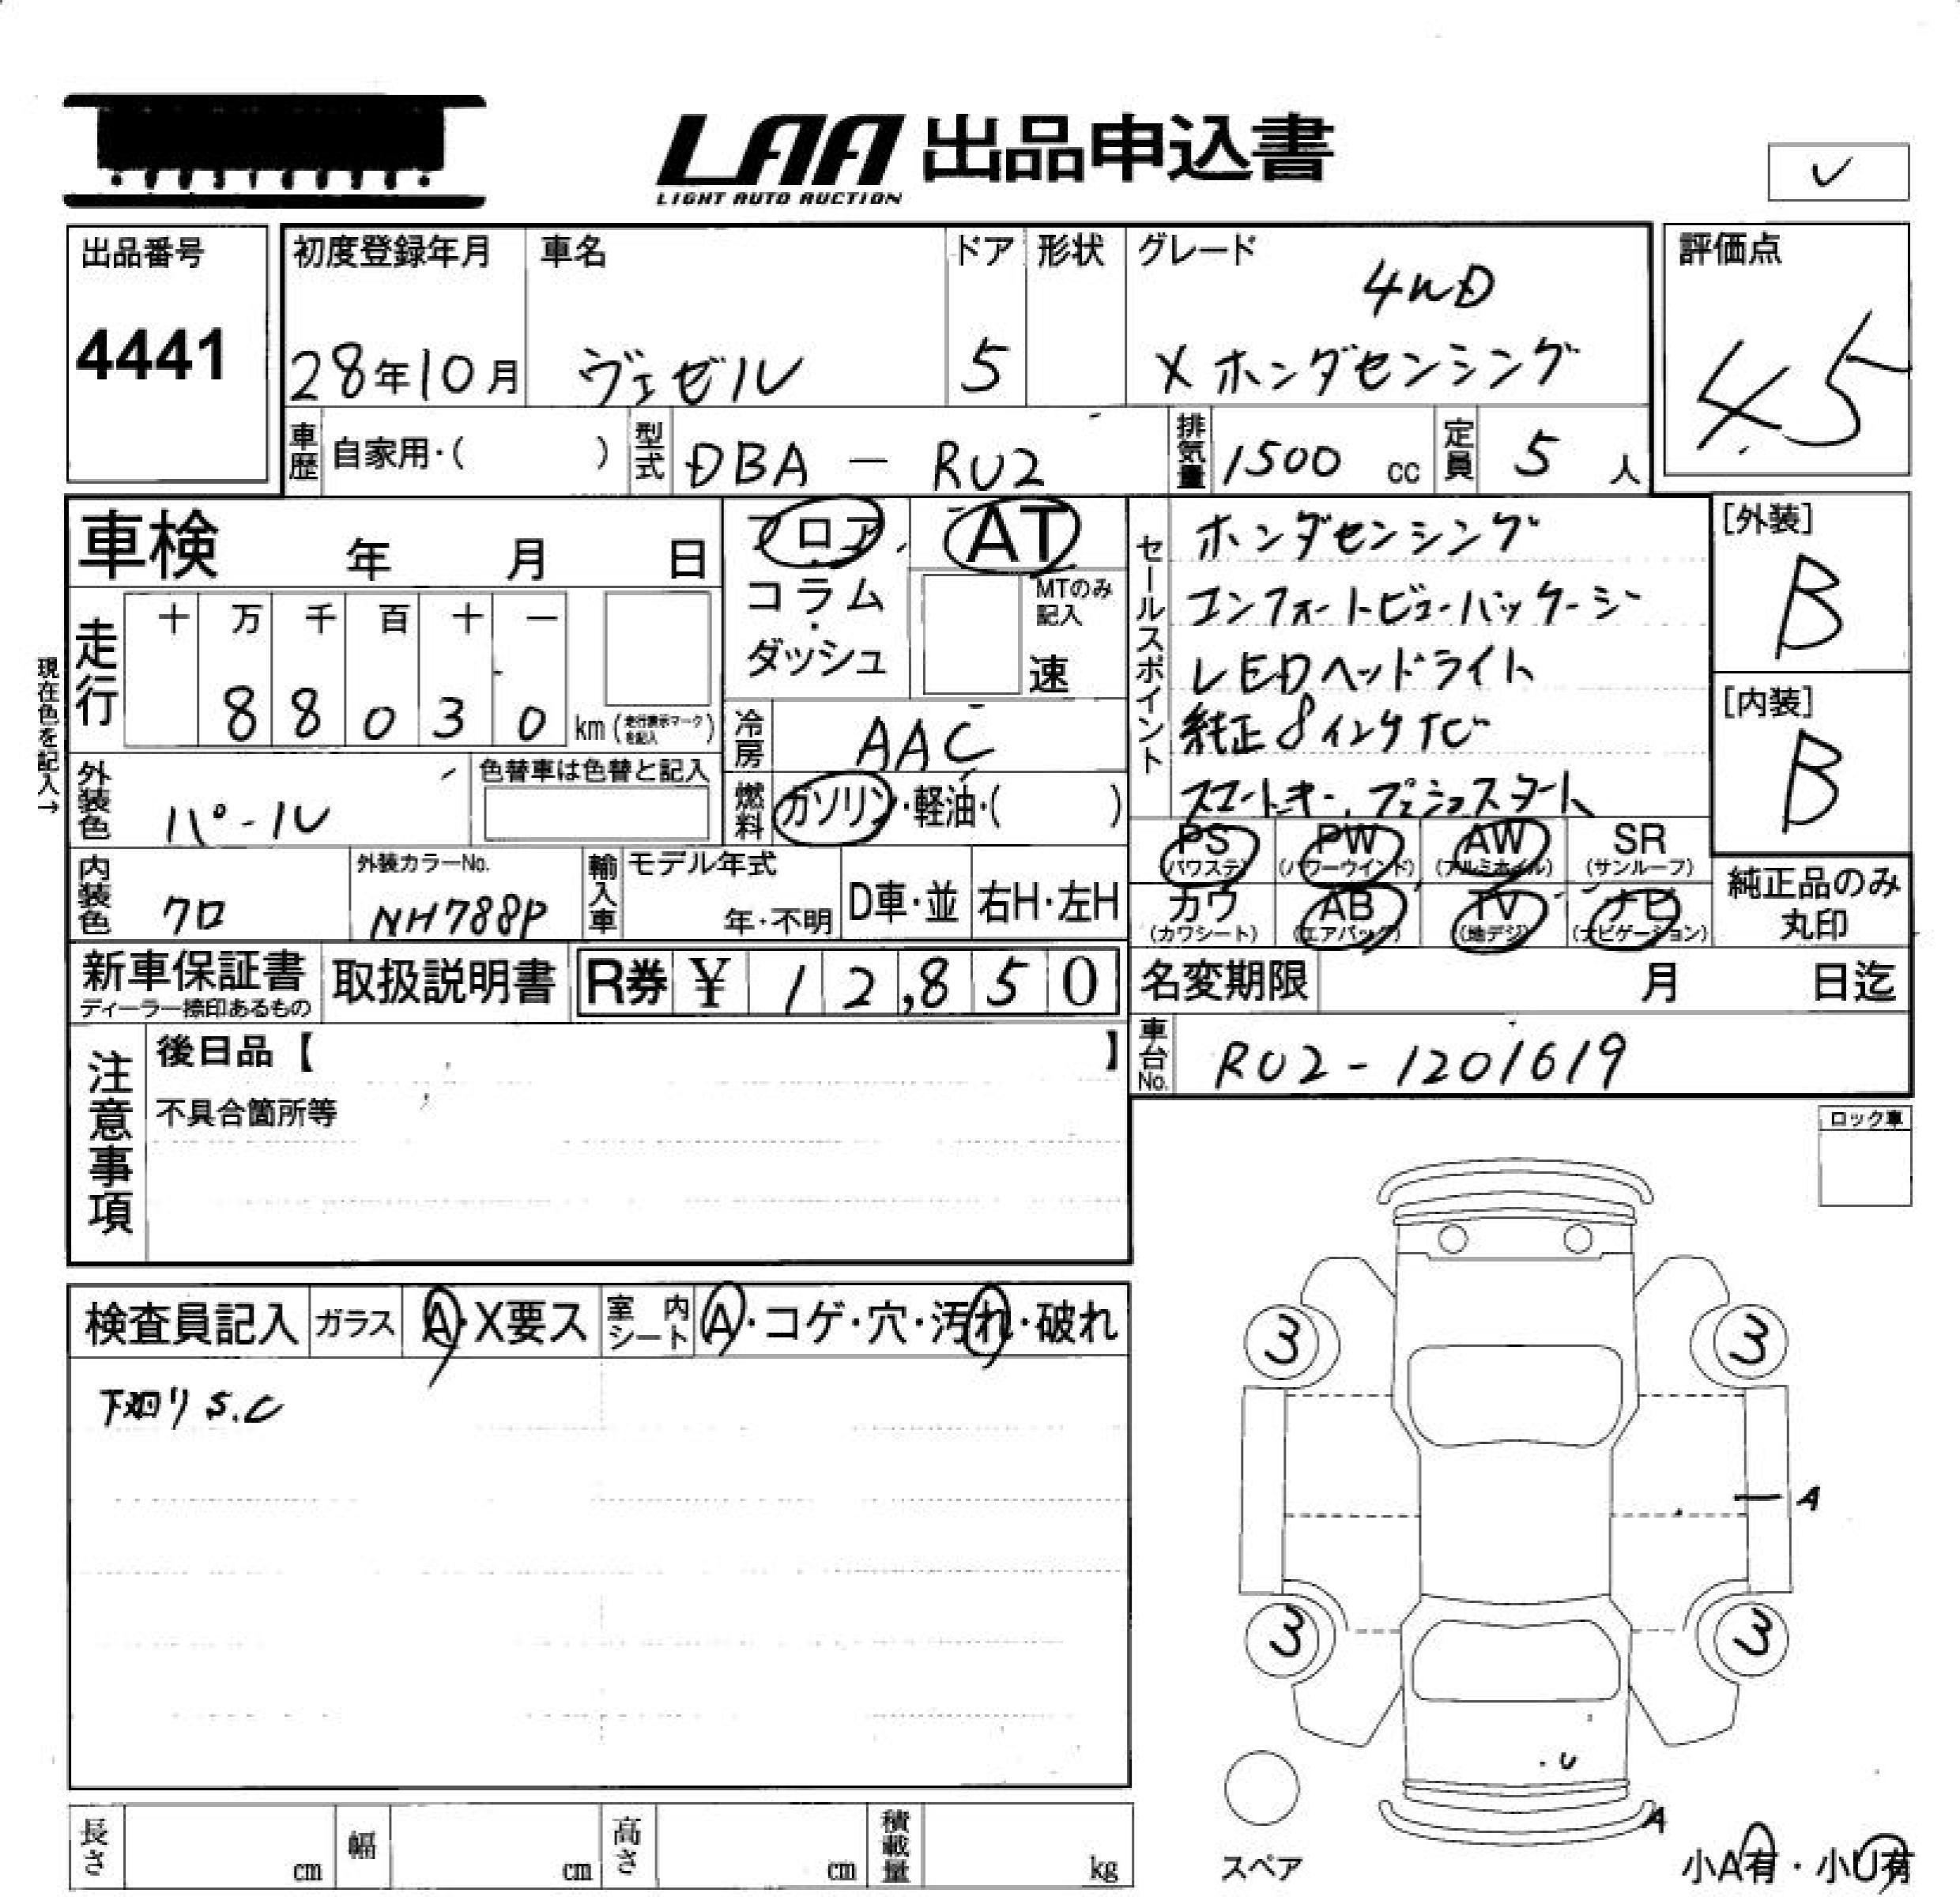 LAA 出品申込書
LIGHT AUTO AUCTION
✓
出品番号
4441
初度登録年月
28年10月
車名
ヴェゼル
ドア
5
形状
グレード
4WD
X ホンダセンシング
評価点
4.5
車歴 自家用・( )
型式 DBA - RU2
排気量 1500 cc
定員 5 人
車検 年 月 日
フロア
コラム
・
ダッシュ
AT
MTのみ
記入
速
現在色を記入→
走行
十 万 千 百 十 一
8 8 0 3 0 km (走行表示マークを記入)
冷房 AAC
燃料 ガソリン・軽油・( )
外装色 パール
色替車は色替と記入
セールスポイント
ホンダセンシング
コンフォートビューパッケージ
LEDヘッドライト
純正8インチナビ
スマートキー、プッシュスタート
[外装]
B
[内装]
B
PS (パワステ)
PW (パワーウインド)
AW (アルミホイル)
SR (サンルーフ)
カワ (カワシート)
AB (エアバック)
TV (地デジ)
ナビ (ナビゲーション)
純正品のみ
丸印
内装色 クロ
外装カラーNo.
NH788P
輸入車
モデル年式
年・不明
D車・並
右H・左H
新車保証書
ディーラー捺印あるもの
取扱説明書
R券 ¥ 12,850
名変期限 月 日迄
車台No. RU2-1201619
注意事項
後日品【 】
不具合箇所等
ロック車
検査員記入
ガラス A・X要ス
室内シート A・コゲ・穴・汚れ・破れ
S.C
3
3
A
3
3
U
A
スペア
小A有・小U有
長さ cm
幅 cm
高さ cm
積載量 kg